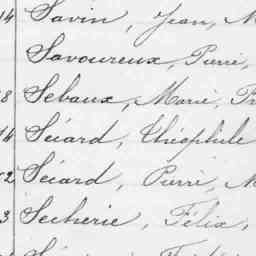 14 Savin, Jean, M
Savoureux, Pierre,
8 Sebaux, Marie, Fr
14 Séiard, Théophile
2 Séiard, Pierre, M
3 Secherie, Félix,